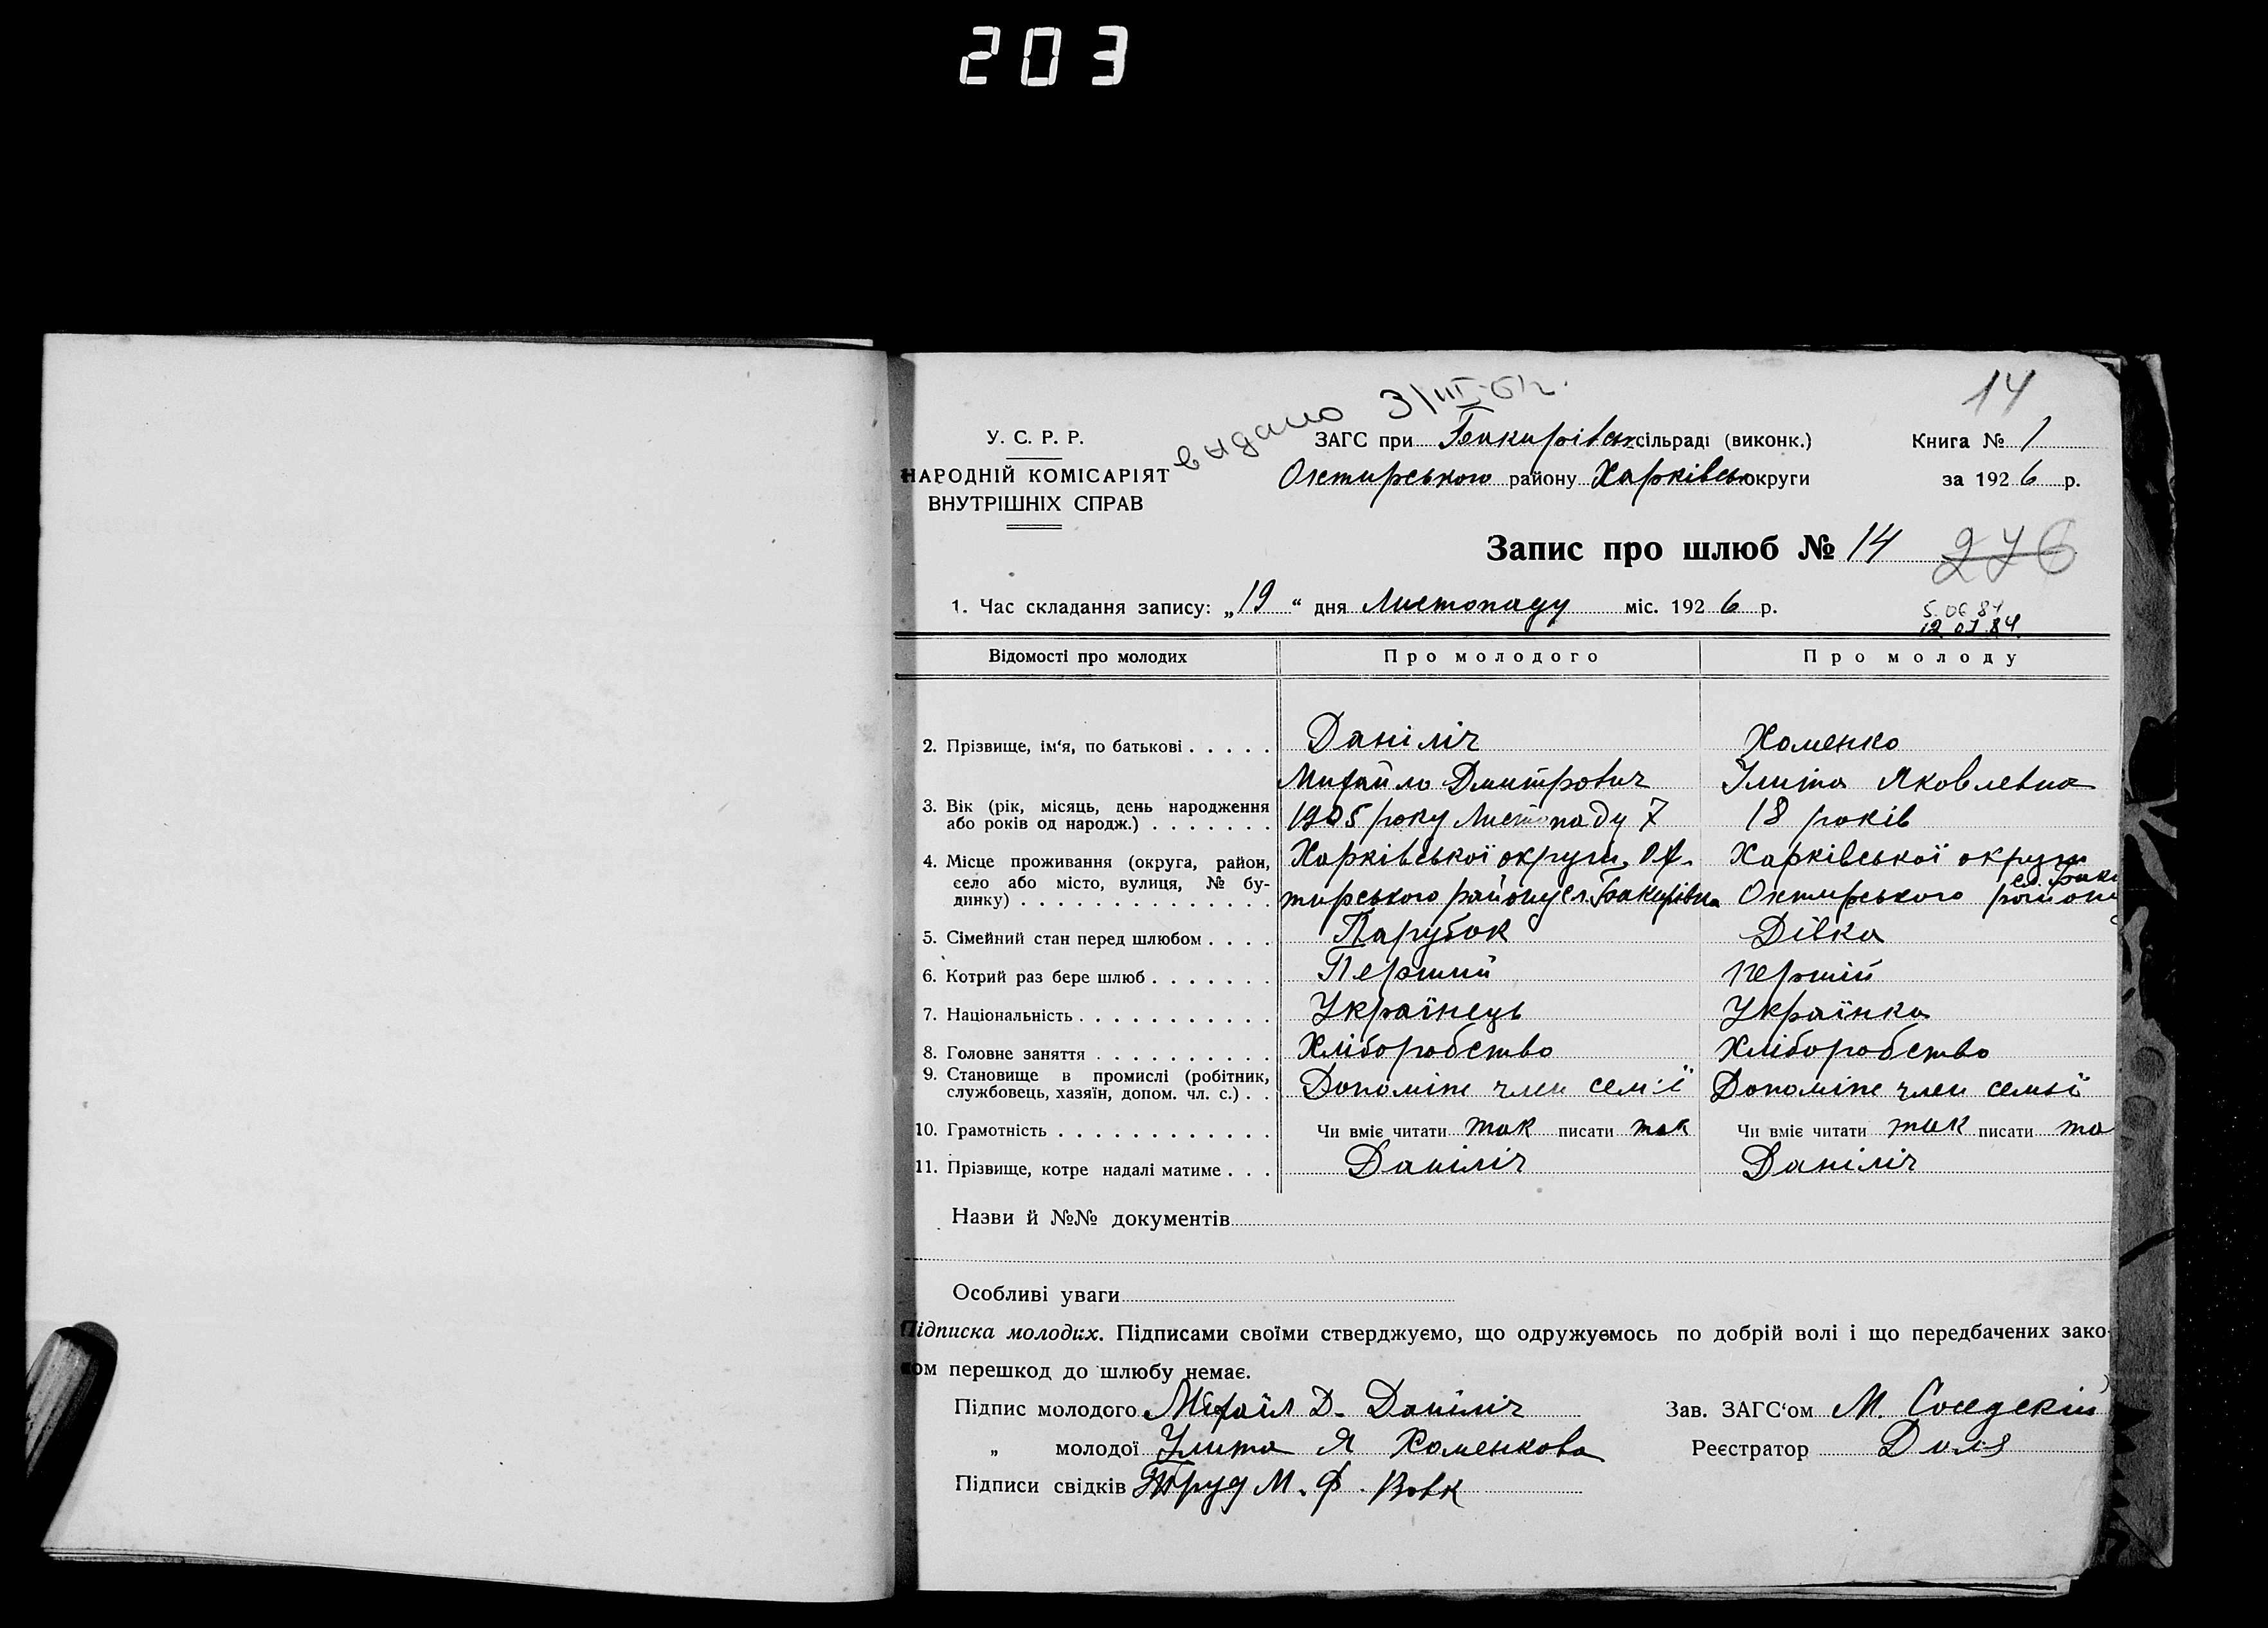 203
14
видано 3/III-61г.
У. С. Р. Р.
НАРОДНІЙ КОМІСАРІЯТ
ВНУТРІШНІХ СПРАВ
ЗАГС при Бакирівск сільраді (виконк.)
Охтирського району Харківськ округи
Книга № 1
за 1926 р.
Запис про шлюб № 14
276
1. Час складання запису: „19“ дня Листопаду міс. 1926 р.
5.06.81
12.01.84.
Відомості про молодих Про молодого Про молоду
2. Прізвище, ім'я, по батькові Даніліч Хоменко
Михайло Дмитрович Улита Яковлевна
3. Вік (рік, місяць, день народження
або років од народж.) 1905 року Листопаду 7 18 років
4. Місце проживання (округа, район, Харківської округи, Ох- Харківської округи
село або місто, вулиця, № бу-
динку) тирського району сл. Бакирівка Охтирського району
5. Сімейний стан перед шлюбом Парубок Дівка
6. Котрий раз бере шлюб Перший першій
7. Національність Українець Українка
8. Головне заняття Хліборобство Хліборобство
9. Становище в промислі (робітник,
службовець, хазяїн, допом. чл. с.) Допоміж член сем'ї Допоміж член семьї
10. Грамотність Чи вміє читати так писати так Чи вміє читати так писати та
11. Прізвище, котре надалі матиме Даніліч Даніліч
Назви й №№ документів
Особливі уваги
Підписка молодих. Підписами своїми стверджуємо, що одружуємось по добрій волі і що передбачених зако-
ом перешкод до шлюбу немає.
Підпис молодого Міхаіл Д. Даніліч Зав. ЗАГС'ом М.
„ молодої Улита Я Хоменкова Реєстратор Доля
Підписи свідків М. Ф. Вовк